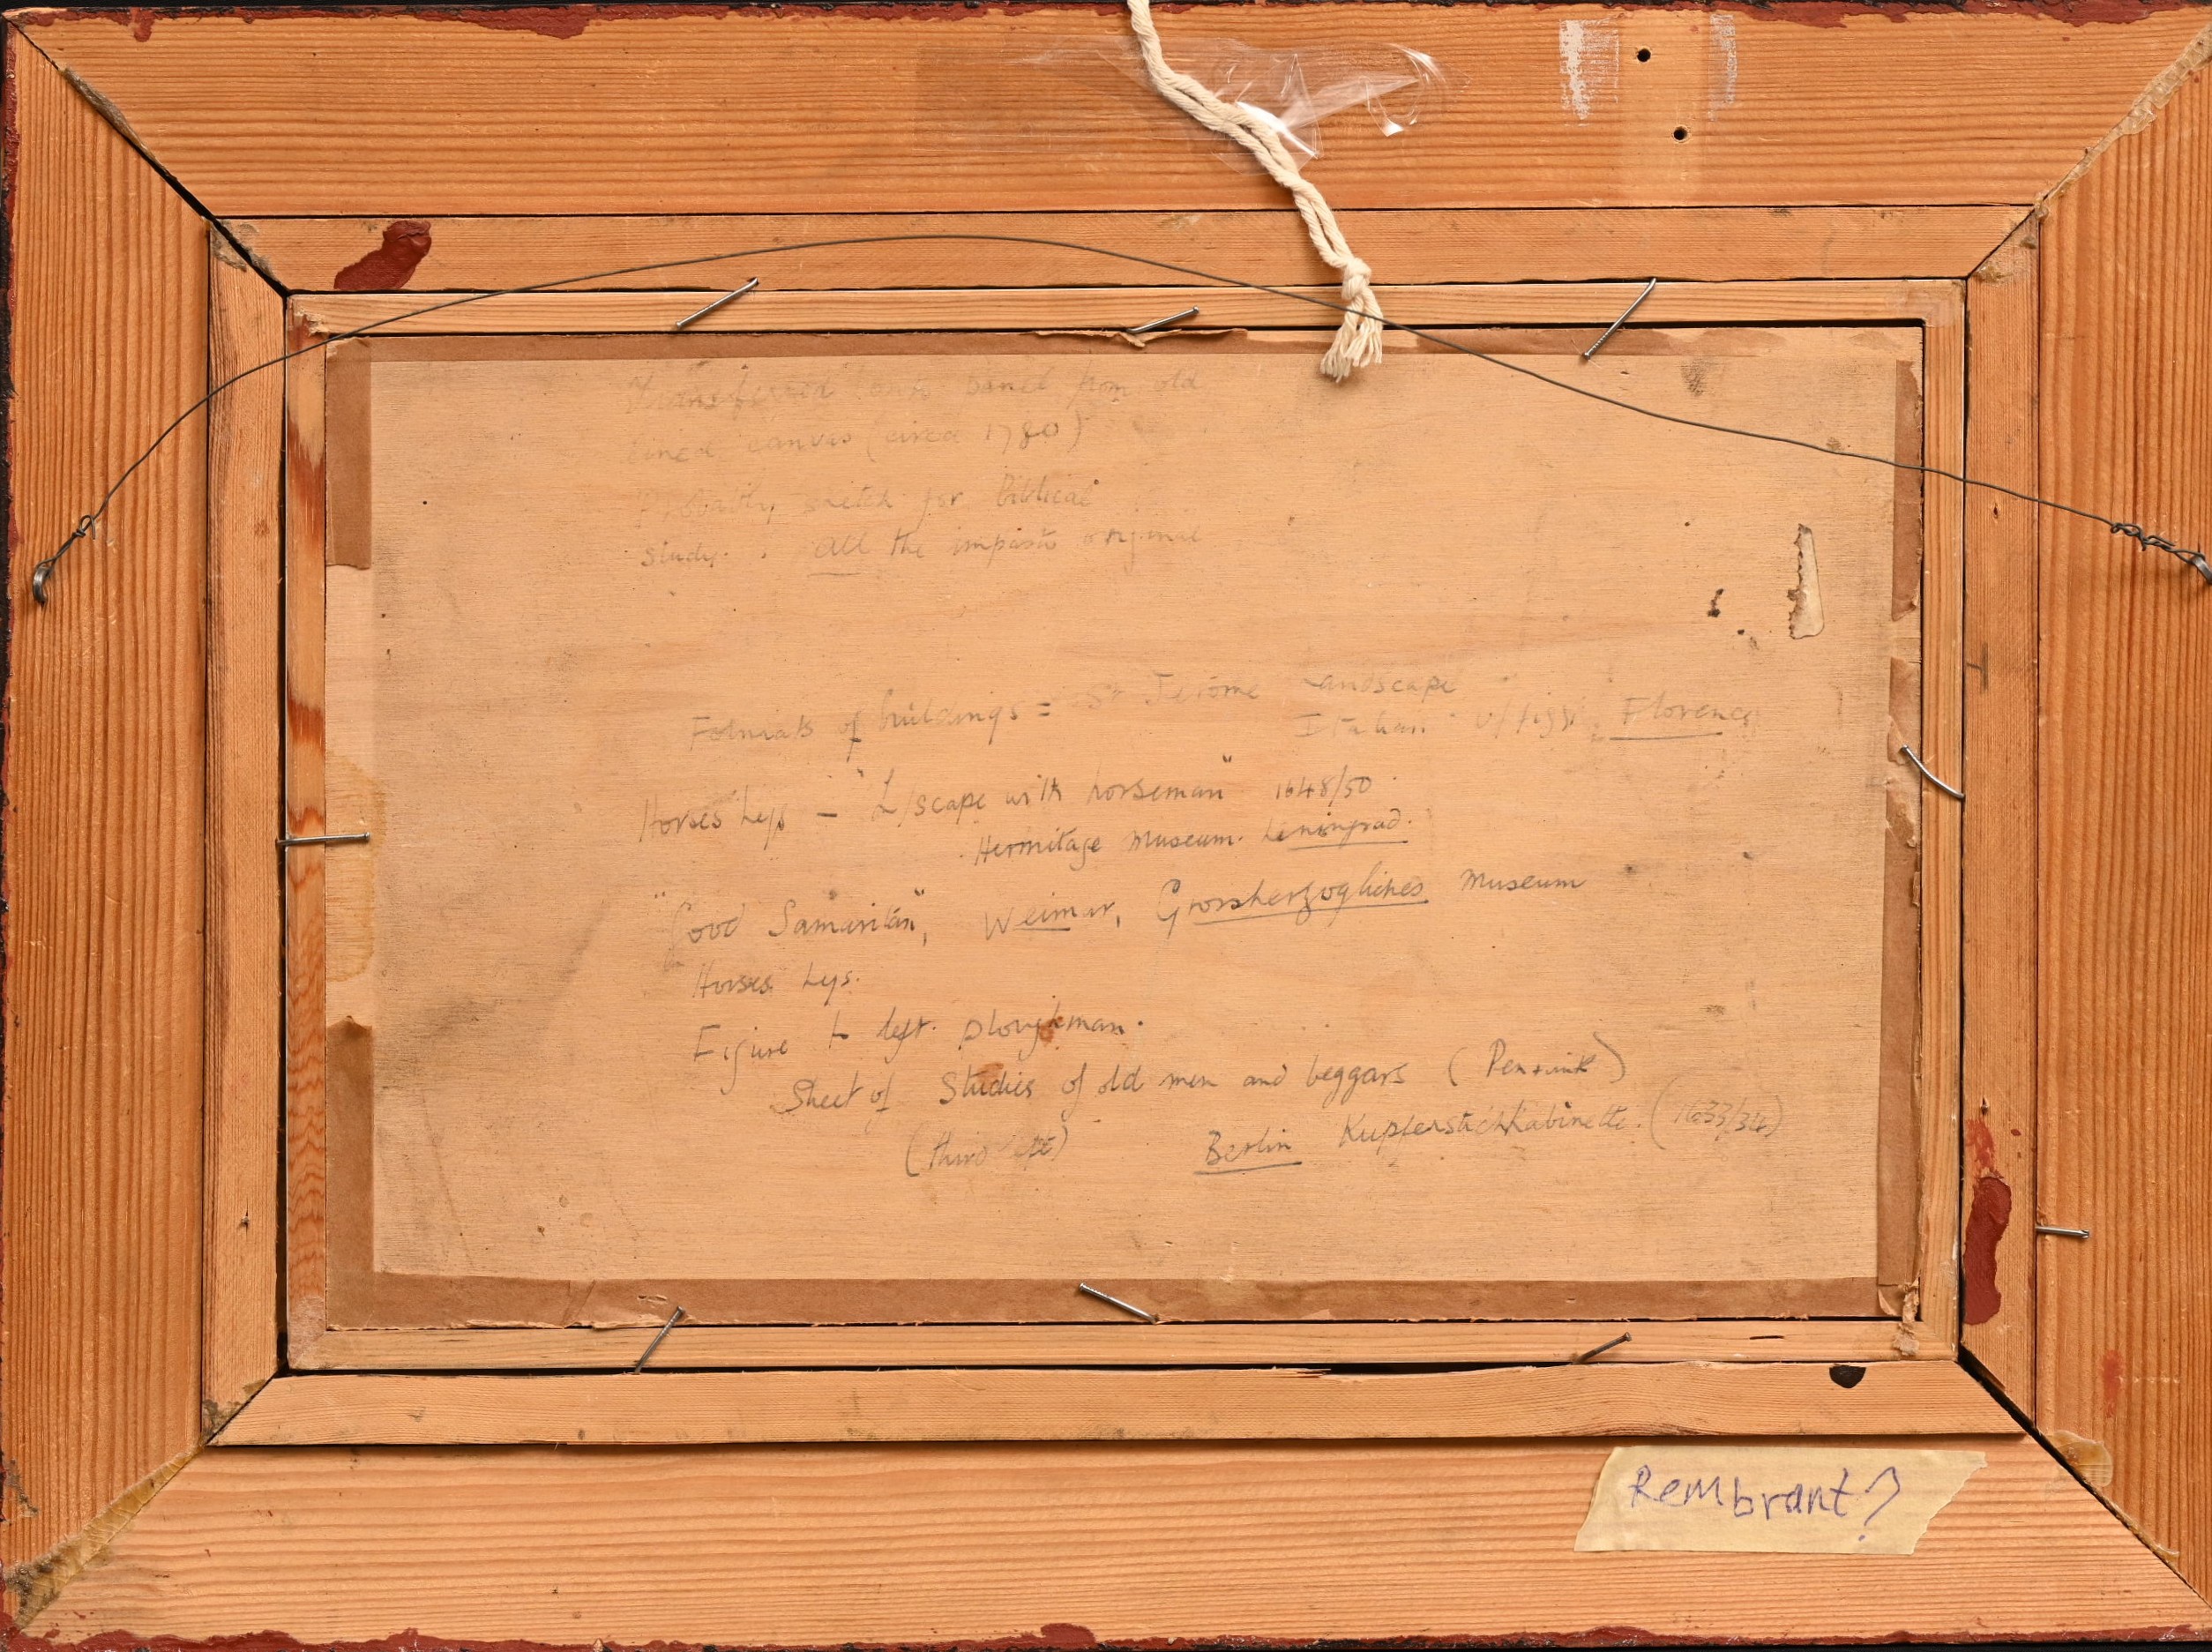 Transferred panel from old
lined canvas (circa 1780)
Probably sketch for Biblical
study. All the impasto original
Formats of buildings = St Jerome Landscape
Italian Florence
Horses Legs – "L/scape with horseman" 1648/50
Hermitage Museum. Leningrad.
"Good Samaritan", Weimar, Grossherzogliches Museum
Horses Legs.
Figure to left. Ploughman.
Sheet of Studies of old men and beggars (Pen + ink)
(third Berlin Kupferstichkabinette. (1633/34)
Rembrant?